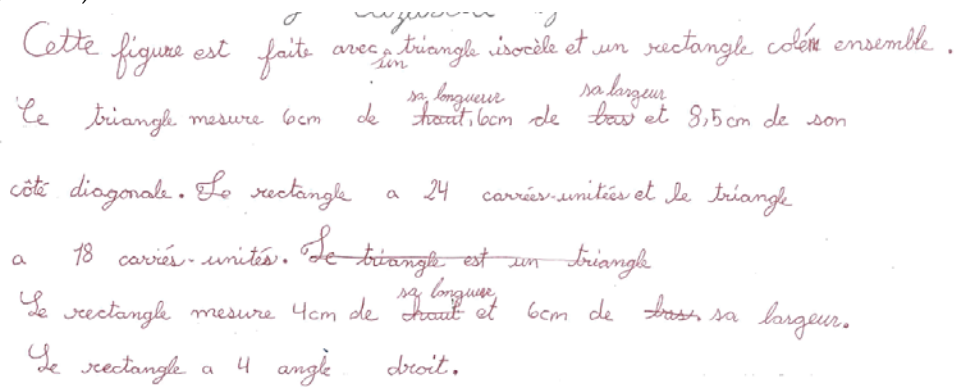 Cette figure est faite avec un triangle isocèle et un rectangle colér ensemble.
sa longueur sa largeur
Le triangle mesure 6cm de haut, 6cm de bas et 8,5cm de son
côté diagonale. Le rectangle a 24 carrées-unitées et le triangle
a 18 carrés-unités. Le triangle est un triangle
sa longueur
Le rectangle mesure 4cm de haut et 6cm de bas sa largeur.
Le rectangle a 4 angle droit.